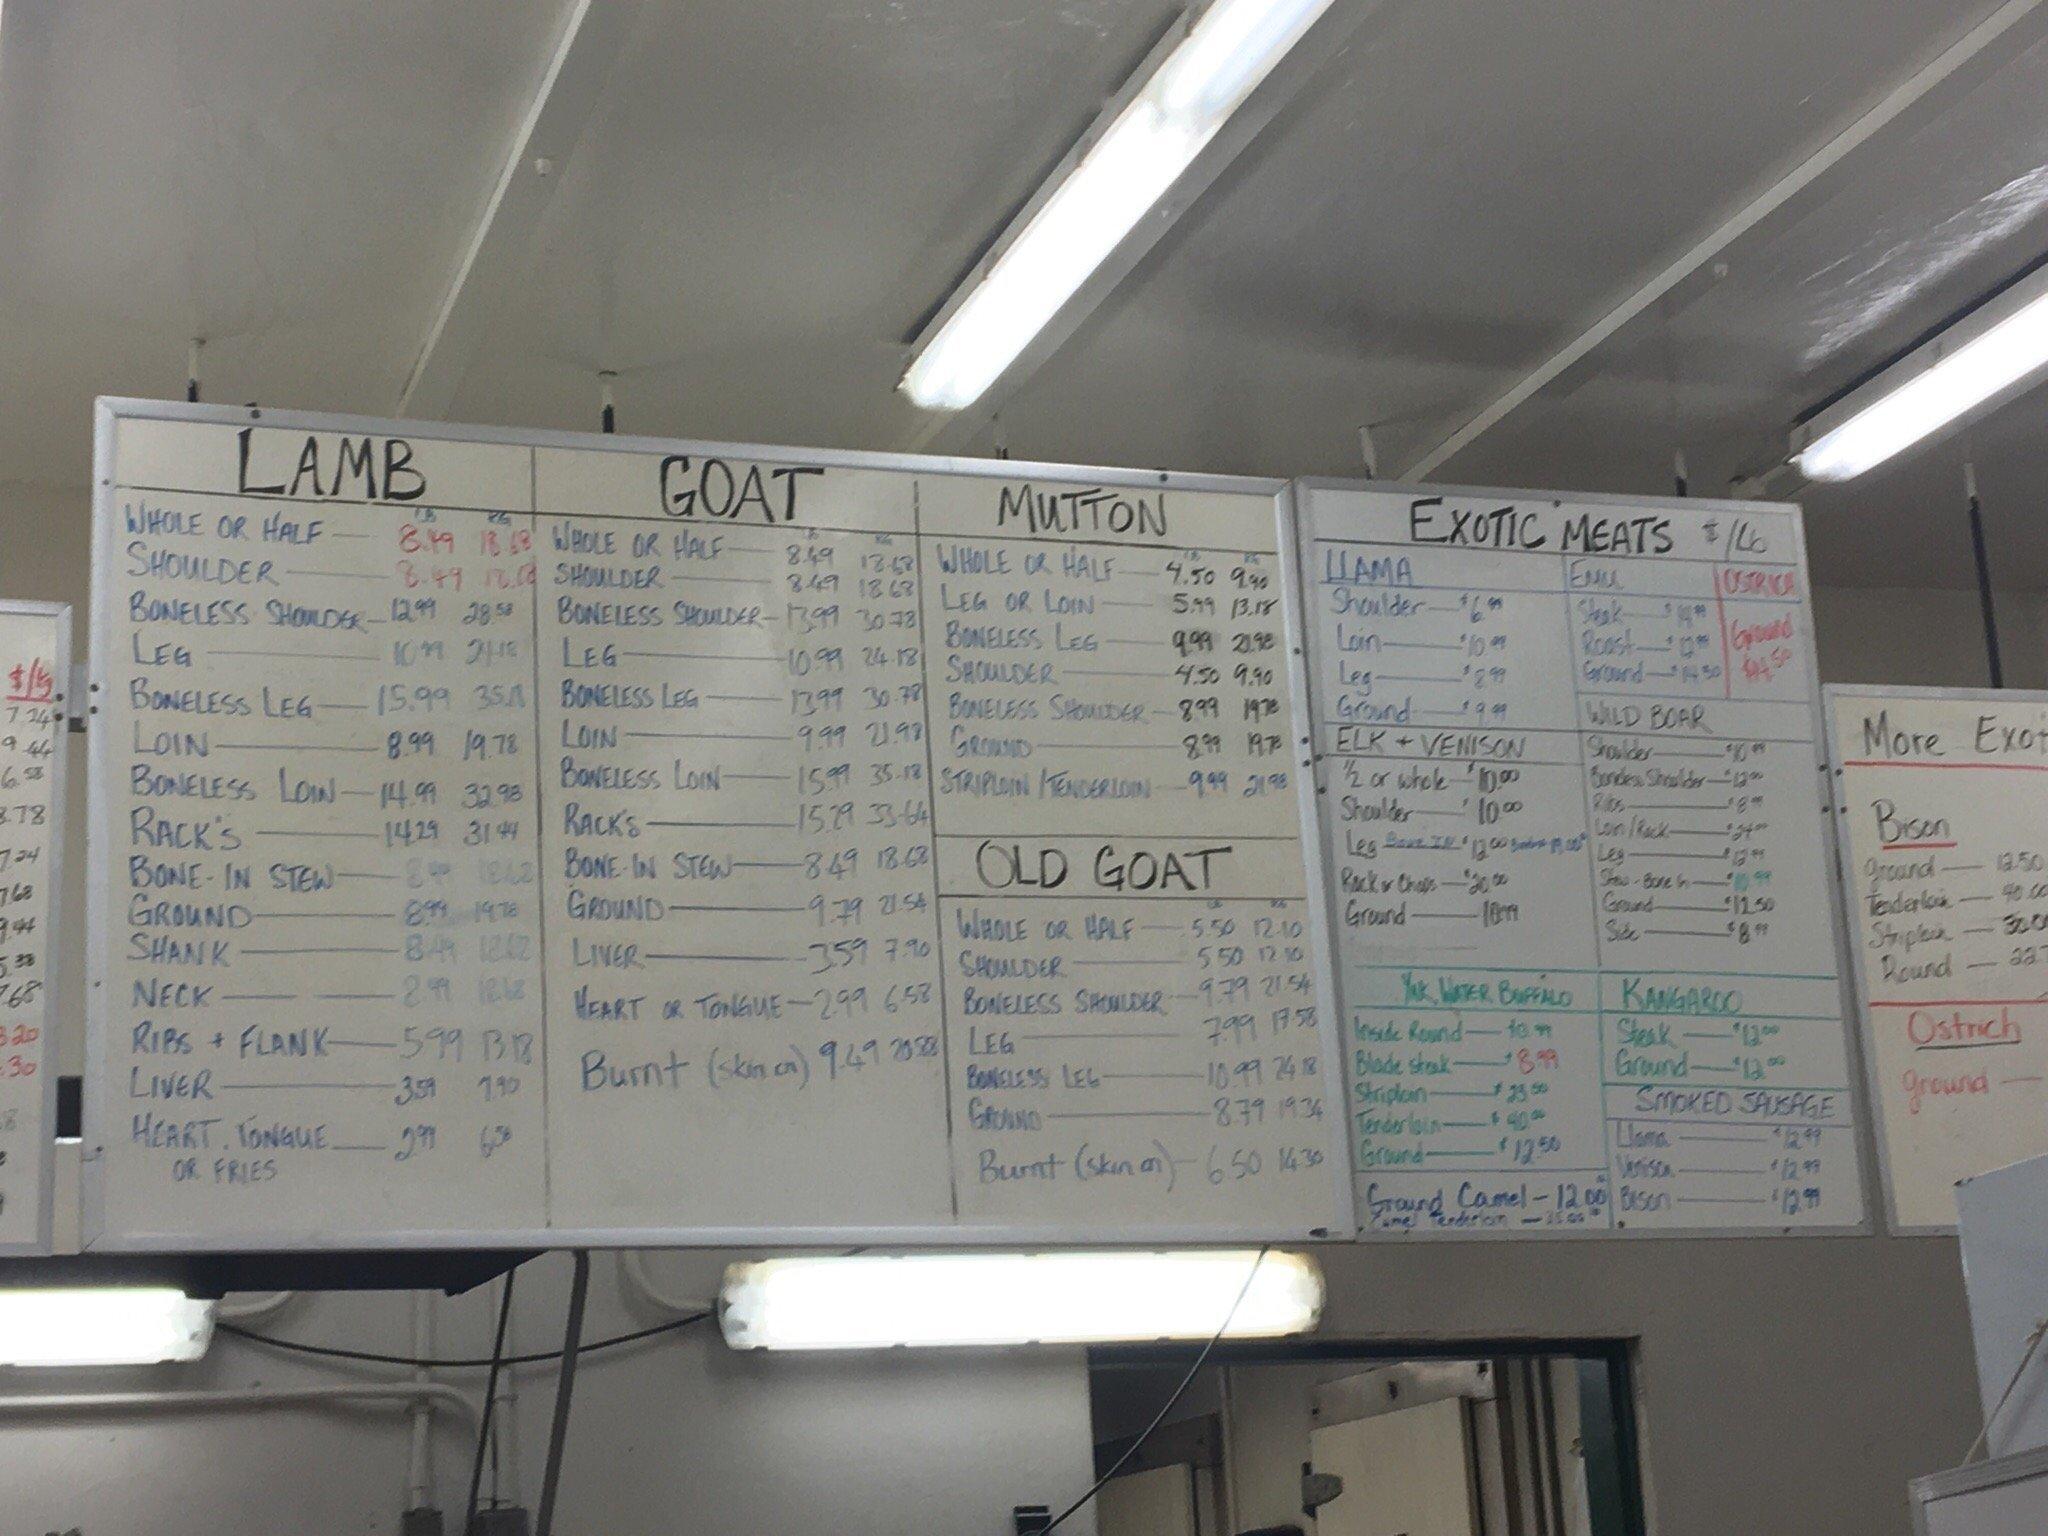 $/kg
7.24
9.44
6.58
3.78
7.24
7.68
9.44
5.38
7.68
3.20
.30
LAMB
LB KG
WHOLE OR HALF — 8.49 18.68
SHOULDER — 8.49 18.68
BONELESS SHOULDER — 12.99 28.58
LEG — 10.99 24.18
BONELESS LEG — 15.99 35.18
LOIN — 8.99 19.78
BONELESS LOIN — 14.99 32.98
RACK'S — 14.29 31.44
BONE-IN STEW —
GROUND — 8.99 19.78
SHANK — 8.49
NECK —
RIBS + FLANK — 5.99 13.18
LIVER — 3.59 7.90
HEART, TONGUE — 2.99 6.58
OR FRIES
GOAT
LB KG
WHOLE OR HALF — 8.49 18.68
SHOULDER 8.49 18.68
BONELESS SHOULDER — 13.99 30.78
LEG — 10.99 24.18
BONELESS LEG — 13.99 30.78
LOIN — 9.99 21.98
BONELESS LOIN — 15.99 35.18
RACK'S — 15.29 33.64
BONE-IN STEW — 8.49 18.68
GROUND — 9.79 21.54
LIVER — 3.59 7.90
HEART OR TONGUE — 2.99 6.58
Burnt (skin on) 9.49 20.88
MUTTON
LB KG
WHOLE OR HALF — 4.50 9.90
LEG OR LOIN — 5.99 13.18
BONELESS LEG — 9.99 21.98
SHOULDER — 4.50 9.90
BONELESS SHOULDER — 8.99 19.78
GROUND — 8.99 19.78
STRIPLOIN/TENDERLOIN — 9.99 21.98
OLD GOAT
LB KG
WHOLE OR HALF — 5.50 12.10
SHOULDER 5.50 12.10
BONELESS SHOULDER — 9.79 21.54
LEG — 7.99 17.58
BONELESS LEG — 10.99 24.18
GROUND — 8.79 19.34
Burnt (skin on) — 6.50 14.30
EXOTIC MEATS $/Lb
LLAMA
Shoulder — $6.99
Loin — $10.99
Leg — $8.99
Ground — $9.99
EMU
Steak — $19.99
Roast — $12.99
Ground — $14.50
OSTRICH
Ground
$14.50
ELK + VENISON
1/2 or whole — $10.00
Shoulder — $10.00
Leg Bone IN $12.00
Rack or Chops — $20.00
Ground — 10.99
WILD BOAR
Shoulder — $10.99
Boneless Shoulder — $12.00
Ribs — $8.99
Loin/Rack — $24.00
Leg — $12.99
Stew-Bone In — $10.99
Ground — $12.50
Side — $8.99
YAK, WATER BUFFALO
Inside Round —
Blade steak — $8.99
Striploin — $23.50
Tenderloin — $40.00
Ground — $12.50
KANGAROO
Steak — $12.00
Ground — $12.00
SMOKED SAUSAGE
Llama — $12.99
Venison — $12.99
Bison — $12.99
Ground Camel — 12.00
Camel Tenderloin — 35.00
More Exot
Bison
Ground — 12.50
Tenderloin — 40.00
Striploin — 30.00
Round — 22.7
Ostrich
ground —